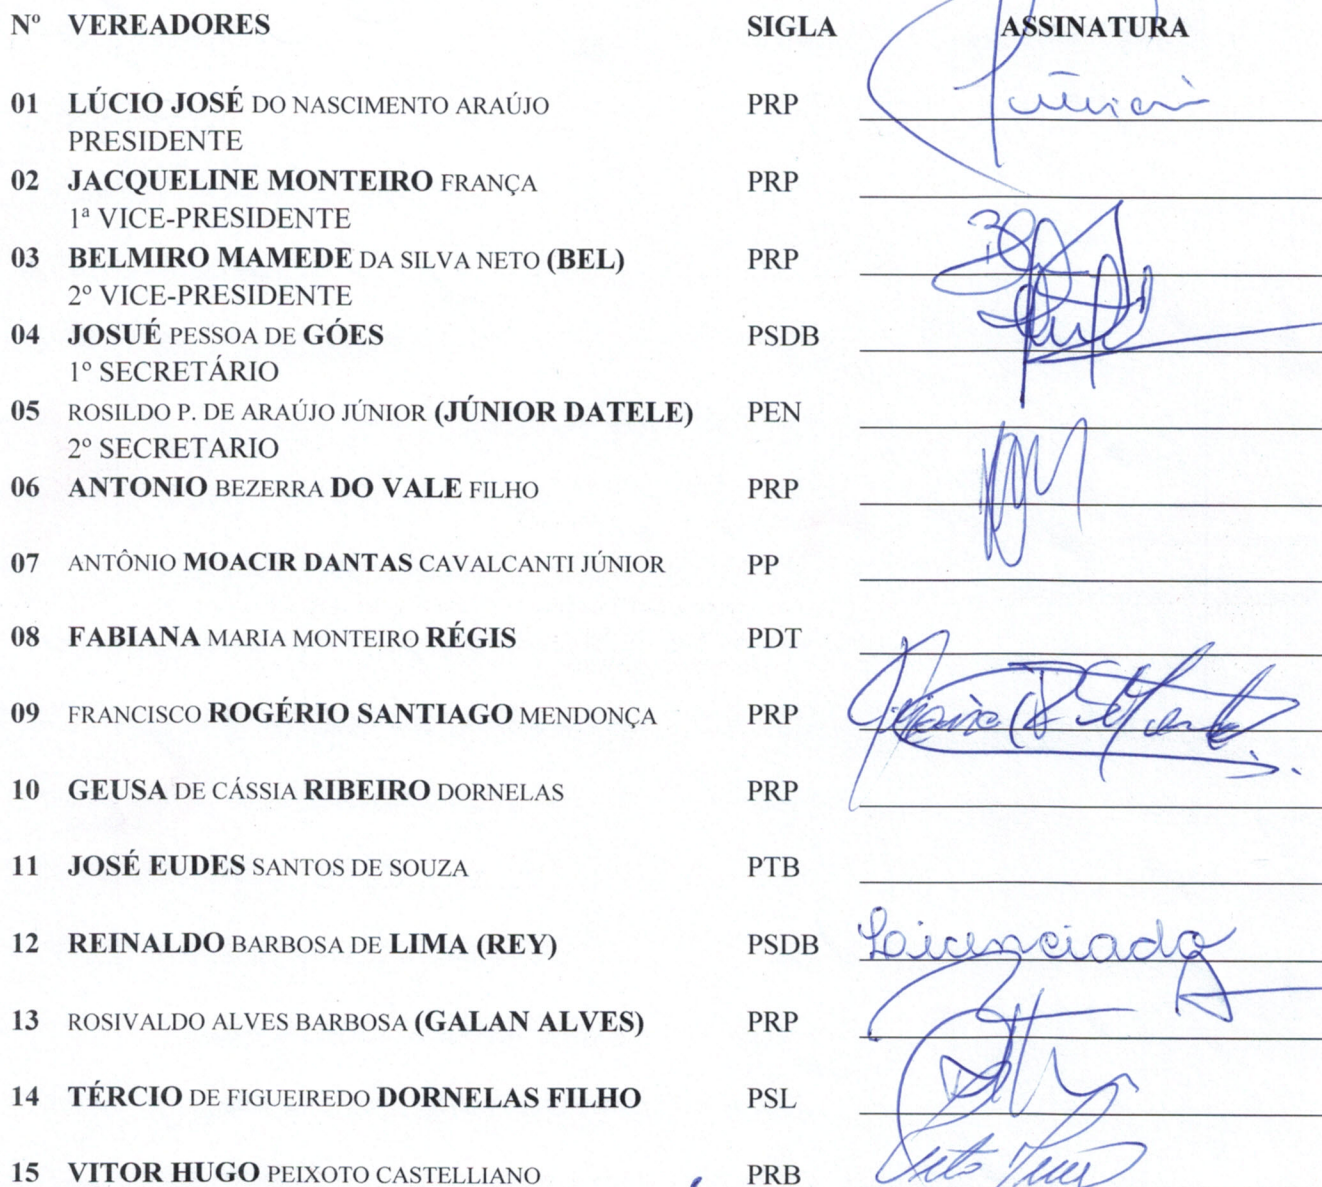 Nº VEREADORES SIGLA ASSINATURA
01 LÚCIO JOSÉ DO NASCIMENTO ARAÚJO PRP
PRESIDENTE
02 JACQUELINE MONTEIRO FRANÇA PRP
1ª VICE-PRESIDENTE
03 BELMIRO MAMEDE DA SILVA NETO (BEL) PRP
2º VICE-PRESIDENTE
04 JOSUÉ PESSOA DE GÓES PSDB
1º SECRETÁRIO
05 ROSILDO P. DE ARAÚJO JÚNIOR (JÚNIOR DATELE) PEN
2º SECRETARIO
06 ANTONIO BEZERRA DO VALE FILHO PRP
07 ANTÔNIO MOACIR DANTAS CAVALCANTI JÚNIOR PP
08 FABIANA MARIA MONTEIRO RÉGIS PDT
09 FRANCISCO ROGÉRIO SANTIAGO MENDONÇA PRP
10 GEUSA DE CÁSSIA RIBEIRO DORNELAS PRP
11 JOSÉ EUDES SANTOS DE SOUZA PTB
12 REINALDO BARBOSA DE LIMA (REY) PSDB Licenciado
13 ROSIVALDO ALVES BARBOSA (GALAN ALVES) PRP
14 TÉRCIO DE FIGUEIREDO DORNELAS FILHO PSL
15 VITOR HUGO PEIXOTO CASTELLIANO PRB